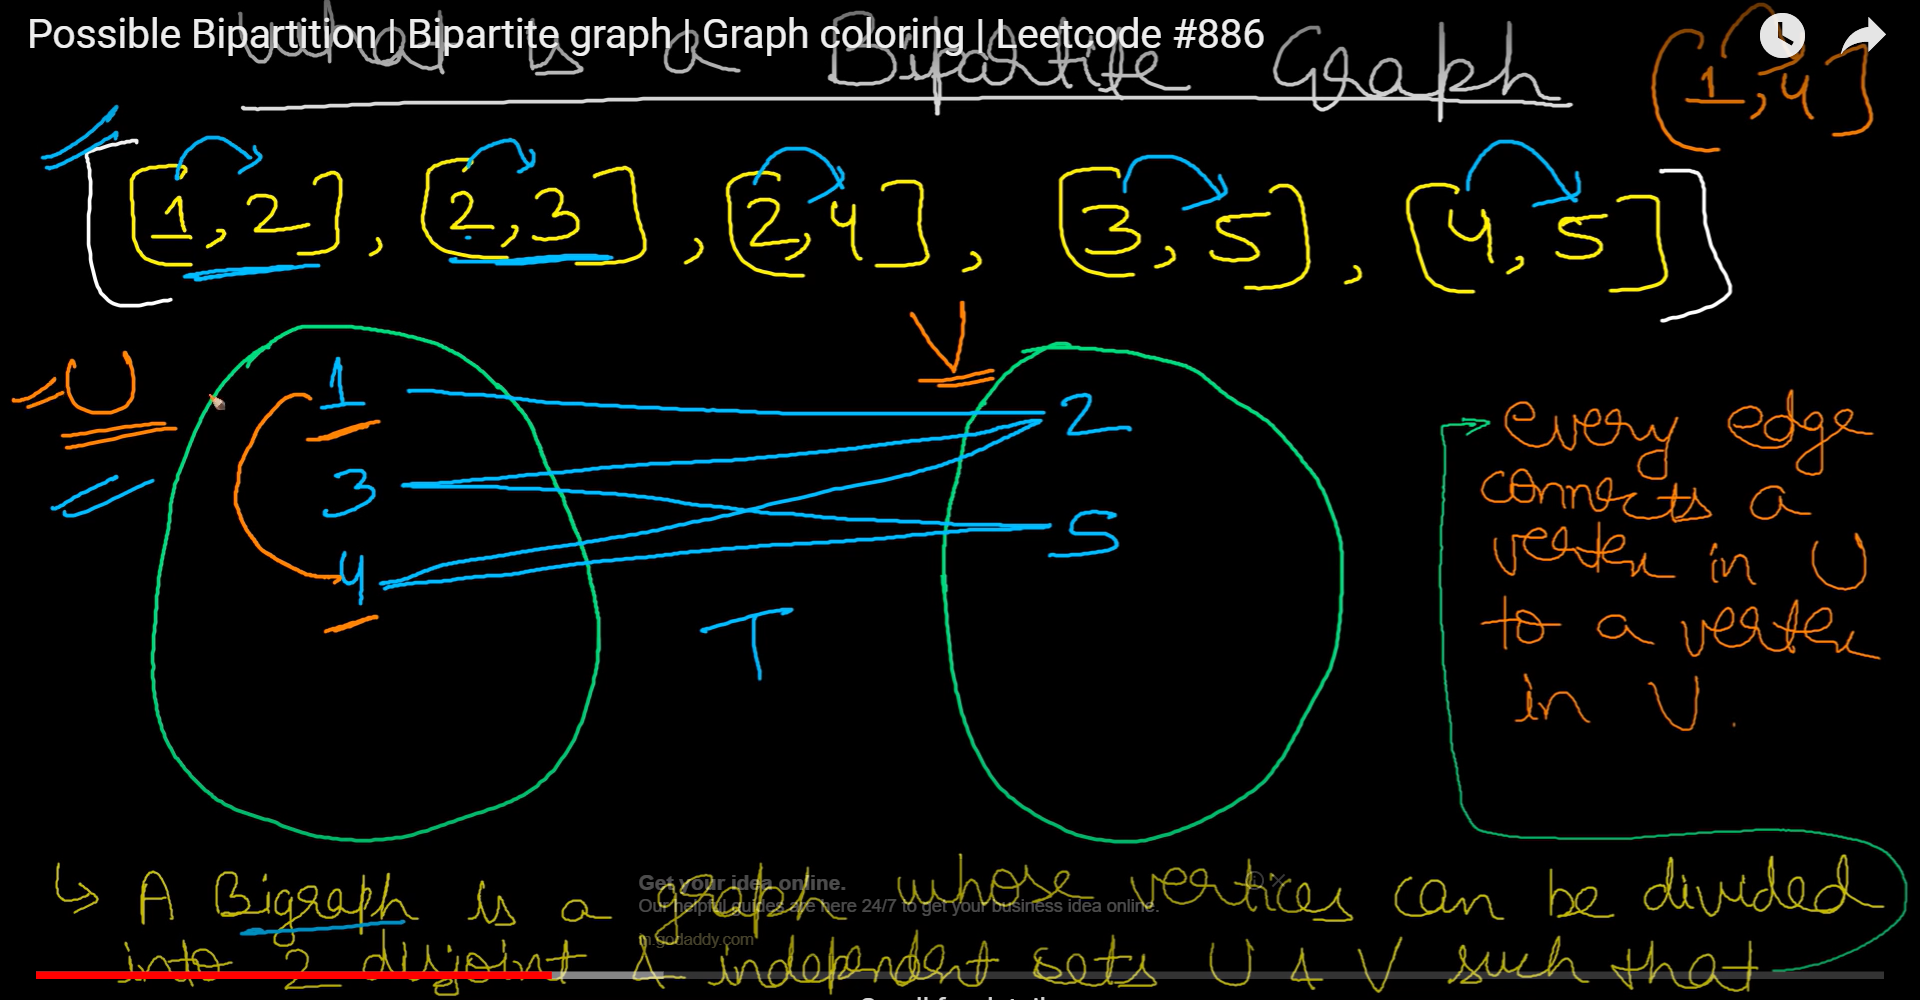 Possible Bipartition | Bipartite graph | Graph coloring | Leetcode #886
What is a Bipartite Graph
[1,4]
[[1,2], [2,3], [2,4], [3,5], [4,5]]
U
V
1
2
3
5
4
T
every edge
connects a
vertex in U
to a vertex
in V.
A Bigraph is a graph whose vertices can be divided
into 2 disjoint & independent sets U & V such that
Get your idea online.
Our helpful guides are here 24/7 to get your business idea online.
in.godaddy.com